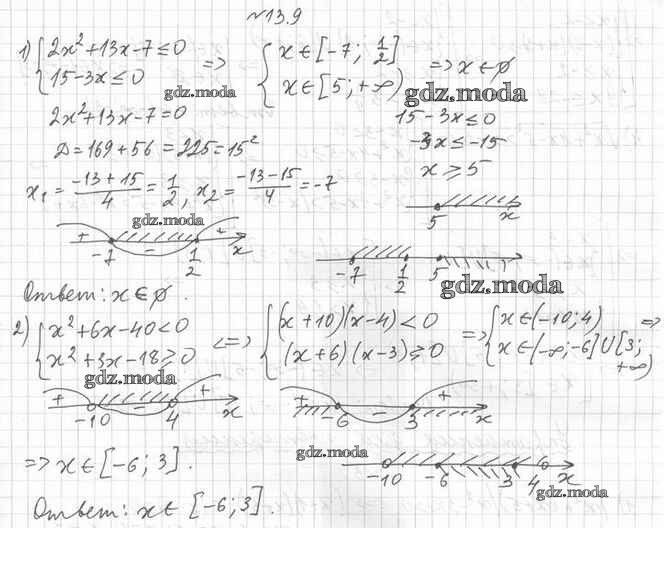 №13.9
1) { 2x² + 13x - 7 ≤ 0
15 - 3x ≤ 0
=> { x ∈ [-7; 1/2]
x ∈ [5; +∞)
=> x ∈ ∅
gdz.moda
gdz.moda
2x² + 13x - 7 = 0
15 - 3x ≤ 0
D = 169 + 56 = 225 = 15²
-3x ≤ -15
x₁ = (-13 + 15)/4 = 1/2, x₂ = (-13 - 15)/4 = -7
x ≥ 5
gdz.moda
5 x
+ - +
-7 1/2 x
-7 1/2 5
gdz.moda
Ответ: x ∈ ∅.
2) { x² + 6x - 40 < 0
x² + 3x - 18 ≥ 0
<=> { (x + 10)(x - 4) < 0
(x + 6)(x - 3) ≥ 0
=> { x ∈ (-10; 4)
x ∈ (-∞; -6] ∪ [3; +∞)
=>
gdz.moda
+ - +
-10 4 x
+ - +
-6 3 x
=> x ∈ [-6; 3].
gdz.moda
-10 -6 3 4 x
gdz.moda
Ответ: x ∈ [-6; 3].